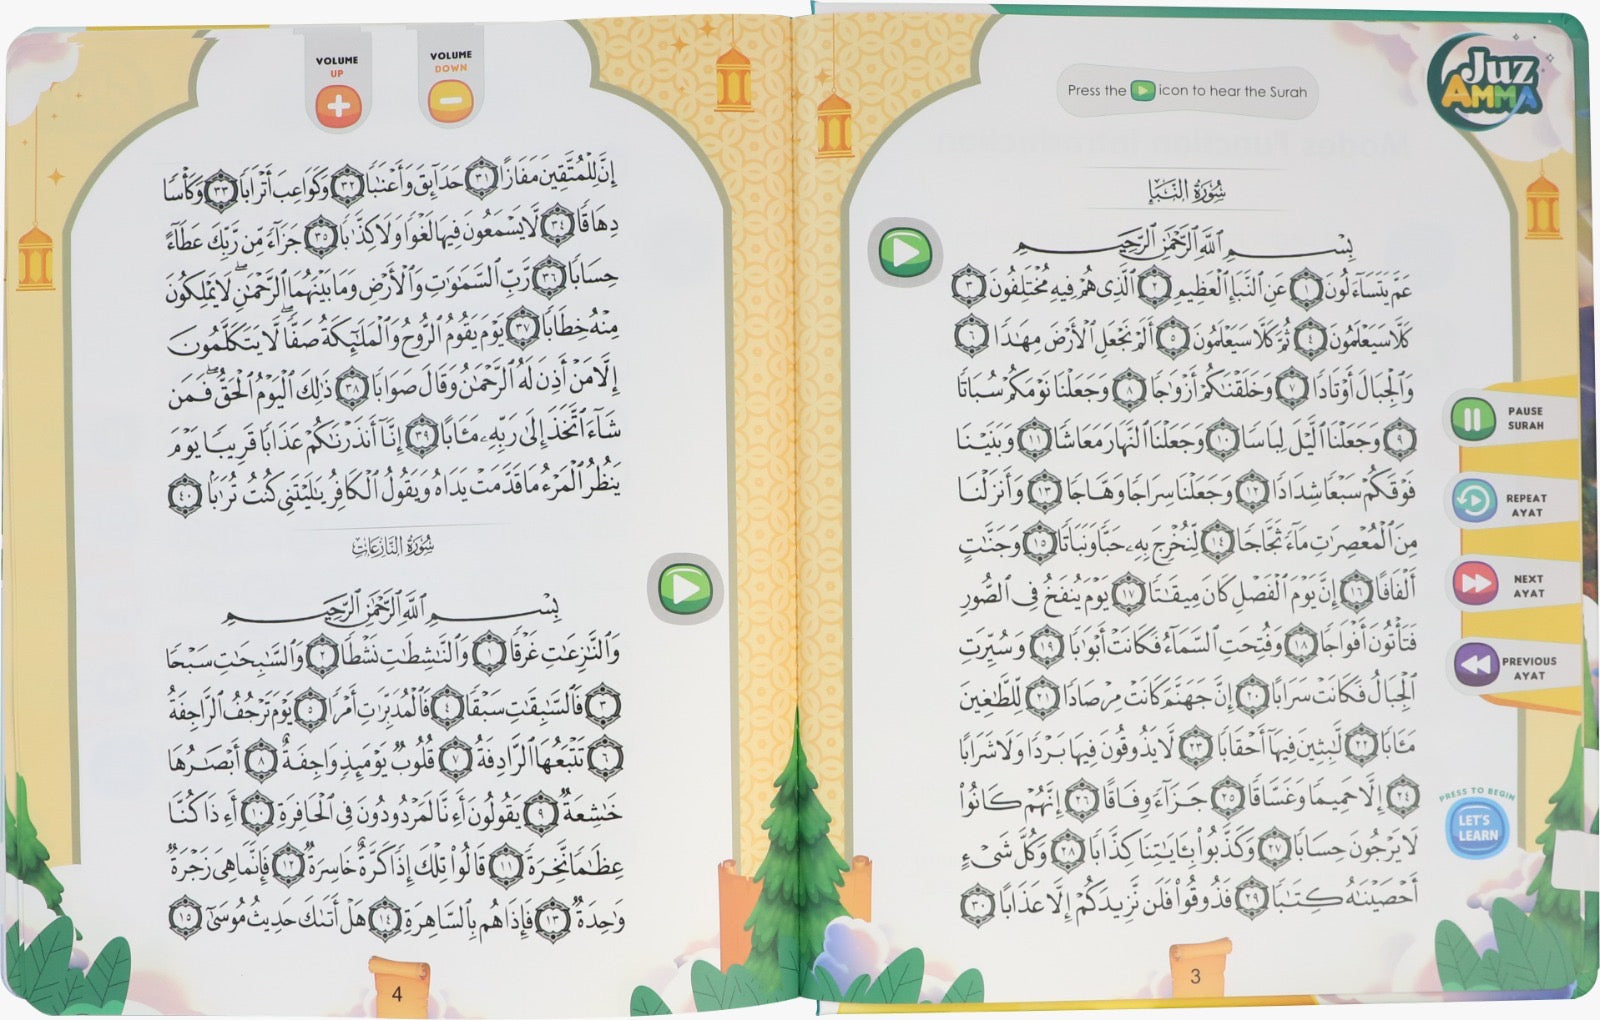 Juz
AMMA
Press the icon to hear the Surah
سُورَةُ النَّبَإِ
بِسْمِ اللَّهِ الرَّحْمَٰنِ الرَّحِيمِ
عَمَّ يَتَسَاءَلُونَ ١ عَنِ النَّبَإِ الْعَظِيمِ ٢ الَّذِي هُمْ فِيهِ مُخْتَلِفُونَ ٣
كَلَّا سَيَعْلَمُونَ ٤ ثُمَّ كَلَّا سَيَعْلَمُونَ ٥ أَلَمْ نَجْعَلِ الْأَرْضَ مِهَٰدًا ٦
وَالْجِبَالَ أَوْتَادًا ٧ وَخَلَقْنَٰكُمْ أَزْوَٰجًا ٨ وَجَعَلْنَا نَوْمَكُمْ سُبَاتًا
٩ وَجَعَلْنَا اللَّيْلَ لِبَاسًا ١٠ وَجَعَلْنَا النَّهَارَ مَعَاشًا ١١ وَبَنَيْنَا
فَوْقَكُمْ سَبْعًا شِدَادًا ١٢ وَجَعَلْنَا سِرَاجًا وَهَّاجًا ١٣ وَأَنزَلْنَا
مِنَ الْمُعْصِرَٰتِ مَاءً ثَجَّاجًا ١٤ لِّنُخْرِجَ بِهِۦ حَبًّا وَنَبَاتًا ١٥ وَجَنَّٰتٍ
أَلْفَافًا ١٦ إِنَّ يَوْمَ الْفَصْلِ كَانَ مِيقَٰتًا ١٧ يَوْمَ يُنفَخُ فِي الصُّورِ
فَتَأْتُونَ أَفْوَاجًا ١٨ وَفُتِحَتِ السَّمَاءُ فَكَانَتْ أَبْوَٰبًا ١٩ وَسُيِّرَتِ
الْجِبَالُ فَكَانَتْ سَرَابًا ٢٠ إِنَّ جَهَنَّمَ كَانَتْ مِرْصَادًا ٢١ لِّلطَّٰغِينَ
مَـَٔابًا ٢٢ لَّٰبِثِينَ فِيهَا أَحْقَابًا ٢٣ لَّا يَذُوقُونَ فِيهَا بَرْدًا وَلَا شَرَابًا
٢٤ إِلَّا حَمِيمًا وَغَسَّاقًا ٢٥ جَزَاءً وِفَاقًا ٢٦ إِنَّهُمْ كَانُوا۟
لَا يَرْجُونَ حِسَابًا ٢٧ وَكَذَّبُوا۟ بِـَٔايَٰتِنَا كِذَّابًا ٢٨ وَكُلَّ شَيْءٍ
أَحْصَيْنَٰهُ كِتَٰبًا ٢٩ فَذُوقُوا۟ فَلَن نَّزِيدَكُمْ إِلَّا عَذَابًا ٣٠
PAUSE
SURAH
REPEAT
AYAT
NEXT
AYAT
PREVIOUS
AYAT
PRESS TO BEGIN
LET'S
LEARN
3
VOLUME
UP
VOLUME
DOWN
إِنَّ لِلْمُتَّقِينَ مَفَازًا ٣١ حَدَائِقَ وَأَعْنَٰبًا ٣٢ وَكَوَاعِبَ أَتْرَابًا ٣٣ وَكَأْسًا
دِهَاقًا ٣٤ لَّا يَسْمَعُونَ فِيهَا لَغْوًا وَلَا كِذَّٰبًا ٣٥ جَزَاءً مِّن رَّبِّكَ عَطَاءً
حِسَابًا ٣٦ رَّبِّ السَّمَٰوَٰتِ وَالْأَرْضِ وَمَا بَيْنَهُمَا الرَّحْمَٰنِ ۖ لَا يَمْلِكُونَ
مِنْهُ خِطَابًا ٣٧ يَوْمَ يَقُومُ الرُّوحُ وَالْمَلَٰئِكَةُ صَفًّا ۖ لَّا يَتَكَلَّمُونَ
إِلَّا مَنْ أَذِنَ لَهُ الرَّحْمَٰنُ وَقَالَ صَوَابًا ٣٨ ذَٰلِكَ الْيَوْمُ الْحَقُّ ۖ فَمَن
شَاءَ اتَّخَذَ إِلَىٰ رَبِّهِۦ مَـَٔابًا ٣٩ إِنَّا أَنذَرْنَٰكُمْ عَذَابًا قَرِيبًا يَوْمَ
يَنظُرُ الْمَرْءُ مَا قَدَّمَتْ يَدَاهُ وَيَقُولُ الْكَافِرُ يَٰلَيْتَنِي كُنتُ تُرَٰبًا ٤٠
سُورَةُ النَّازِعَاتِ
بِسْمِ اللَّهِ الرَّحْمَٰنِ الرَّحِيمِ
وَالنَّٰزِعَٰتِ غَرْقًا ١ وَالنَّٰشِطَٰتِ نَشْطًا ٢ وَالسَّٰبِحَٰتِ سَبْحًا
٣ فَالسَّٰبِقَٰتِ سَبْقًا ٤ فَالْمُدَبِّرَٰتِ أَمْرًا ٥ يَوْمَ تَرْجُفُ الرَّاجِفَةُ
٦ تَتْبَعُهَا الرَّادِفَةُ ٧ قُلُوبٌ يَوْمَئِذٍ وَاجِفَةٌ ٨ أَبْصَٰرُهَا
خَٰشِعَةٌ ٩ يَقُولُونَ أَءِنَّا لَمَرْدُودُونَ فِي الْحَافِرَةِ ١٠ أَءِذَا كُنَّا
عِظَٰمًا نَّخِرَةً ١١ قَالُوا۟ تِلْكَ إِذًا كَرَّةٌ خَاسِرَةٌ ١٢ فَإِنَّمَا هِيَ زَجْرَةٌ
وَٰحِدَةٌ ١٣ فَإِذَا هُم بِالسَّاهِرَةِ ١٤ هَلْ أَتَىٰكَ حَدِيثُ مُوسَىٰ ١٥
4